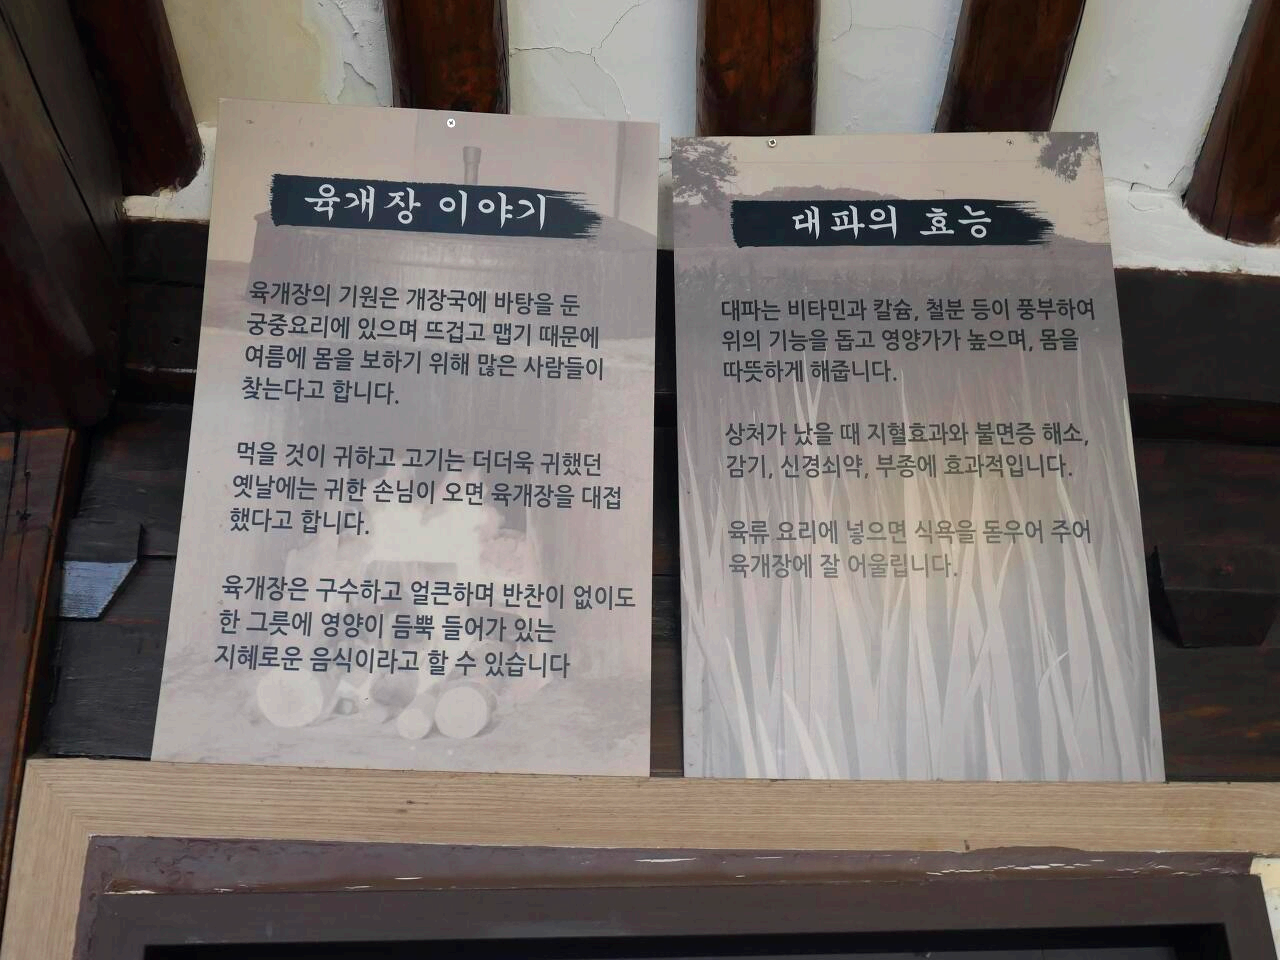 육개장 이야기
육개장의 기원은 개장국에 바탕을 둔
궁중요리에 있으며 뜨겁고 맵기 때문에
여름에 몸을 보하기 위해 많은 사람들이
찾는다고 합니다.
먹을 것이 귀하고 고기는 더더욱 귀했던
옛날에는 귀한 손님이 오면 육개장을 대접
했다고 합니다.
육개장은 구수하고 얼큰하며 반찬이 없이도
한 그릇에 영양이 듬뿍 들어가 있는
지혜로운 음식이라고 할 수 있습니다
대파의 효능
대파는 비타민과 칼슘, 철분 등이 풍부하여
위의 기능을 돕고 영양가가 높으며, 몸을
따뜻하게 해줍니다.
상처가 났을 때 지혈효과와 불면증 해소,
감기, 신경쇠약, 부종에 효과적입니다.
육류 요리에 넣으면 식욕을 돋우어 주어
육개장에 잘 어울립니다.